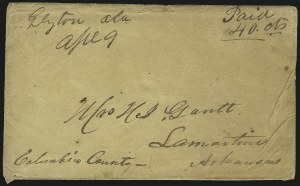 Elyton Ala
Apl 9
Paid
40. cts
Mrs N J Gantt
Lamartine
Columbia County
Arkansas